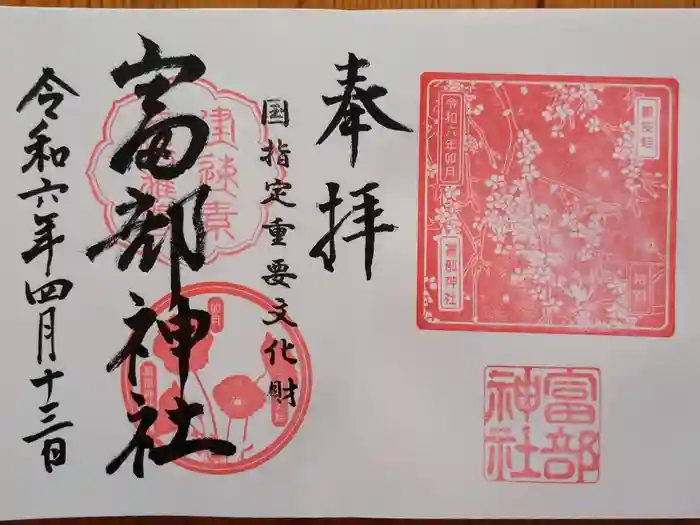 令和六年卯月
富部神社
富部
神社
奉拝
国指定重要文化財
富部神社
卯月
令和六年四月十三日